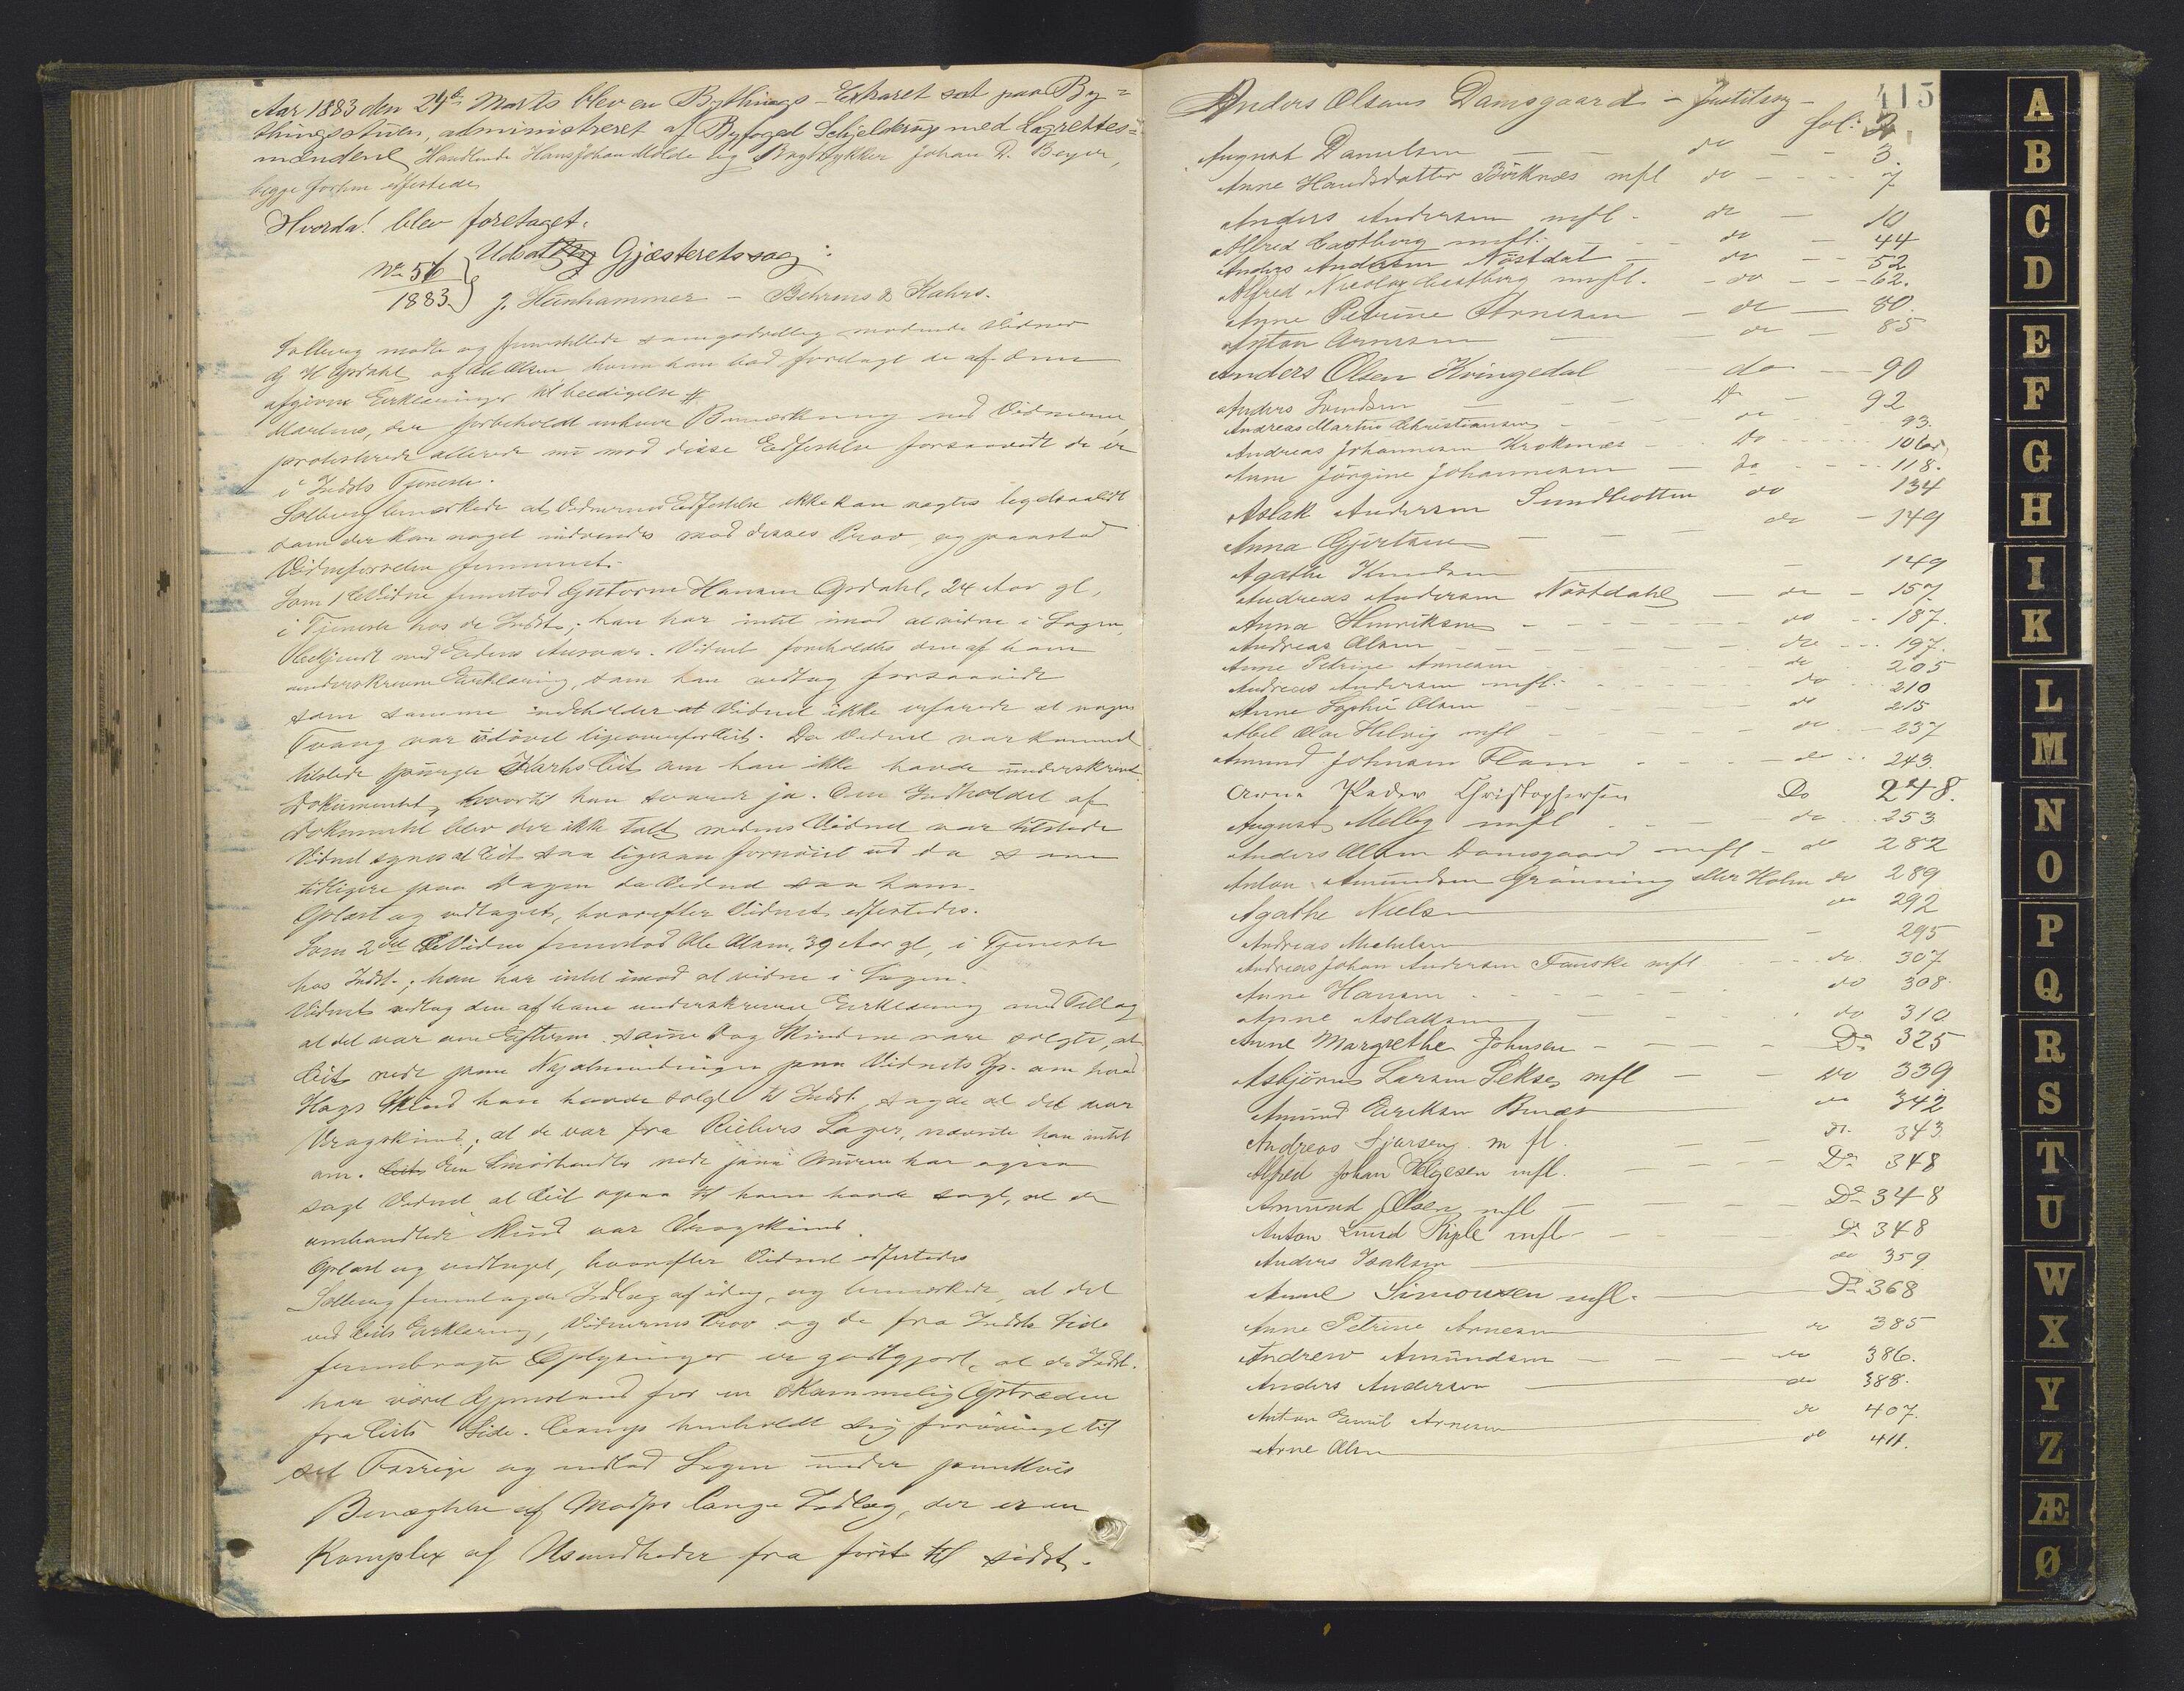 Aar 1883 den 24de Marts blev en Bythings-Extraret sat paa By=
thingsstuen, administreret af Byfoged Schjelderup med Lagrettes=
mændene Handlende Hans Johan Molde og Bogtrykker Johan D. Beyer,
begge forhen edfæstede
Hvorda! blev foretaget:
Udsat Gjæsteretssag:
No 56
1883
J. Steinhammer - Behrens & Kahrs.
Solberg mødte og fremstillede samgodvillig mødende Vidner
G H Opdahl og Ole Olsen hvem han bad forelagt de af dem
afgivne Erklæringer til beedigelse
Martens, der forbeholdt enhver Bemærkning ved Vidnerne,
protesterede allerede nu mod disse Edfæstelse forsaavidt de er
i Indsts Tjeneste.
Solberg bemærkede at Vidnernes Edfæstelse ikke kan nægtes ligesaalidt
som der kan noget indvendes mod disses Prov og paastod
Vidneførselen fremmet.
Som 1ste Vidne fremstod Guttorm Hansen Opdahl, 24 Aar gl,
i Tjeneste hos de Indst; han har intet imod at vidne i Sagen,
Bekjendt med Edens Ansvar. Vidnet foreholdtes den af ham
underskrevne Erklæring, som han vedtog forsaavidt
som samme indeholder at Vidnet ikke erfarede at nogen
Tvang var udøvet ligeoverfor Eist. Da Vidnet var kommet
tilstede spurgte Kahrs Eist om han ikke havde underskrevet
Dokumentet, hvortil han svarede ja. Om Indholdet af
Dokumentet blev der ikke talt medens Vidnet var tilstede
Vidnet synes at Eist saa ligesaa fornøiet ud da som
tidligere paa Dagen da Vidnet saa ham.
Oplæst og vedtaget, hvorefter Vidnet edfæstedes.
Som 2det Vidne fremstod Ole Olsen, 39 Aar gl, i Tjeneste
hos Indst.; han har intet imod at vidne i Sagen.
Vidnet vedtog den af ham underskrevne Erklæring med Tillæg
at det var om Efterm. samme Dag Skindene vare solgte, at
Eist nede paa Nyalmindingen paa Vidnets Sp. om hvad
Slags Skind han havde solgt til Indst, sagde at det var
Vragskind; at de var fra Riebers Lager, nævnte han intet
om. En Smørhandler nede paa Muren har ogsaa
sagt Vidnet at Eist ogsaa til ham havde sagt, at de
omhandlede Skind var Vragskind
Oplæst og vedtaget, hvorefter Vidnet edfæstedes
Solberg fremlagde Indlæg af idag, og bemærkede, at det
ved Eists Erklæring, Vidnernes Prov og de fra Indsts Side
frembragte Oplysninger er godtgjort, at de Indst.
har været Gjenstand for en skammelig Optræden
fra Eists Side. Comp henholdt sig forøvrigt til
det Forrige og indlod Sagen under punktvis
Benægtelse af Modps lange Indlæg, der er en
Komplex af Usandheder fra først til sidst.
415
Anders Olsens Damsgaard - Justitssag - fol: 2
August Danielsen do 3.
Anne Handsdatter Birknes mfl do 7
Anders Andersen mfl. do 10
Alfred Castberg mfl. do 44
Anders Andersen Nøstdal do 52
Alfred Nicolay Castberg mfl. do 62.
Anne Petrine Arnesen do 80.
Anton Arnesen do 85
Anders Olsen Kvingedal do 90
Anders Svendsen Do 92
Andreas Martin Christiansen do 93.
Andreas Johannesen Kroknes Do 106
Anne Jørgine Johannesen do 118.
Aslak Andersen Sundbotten do 134
Anna Gjertsen do 149
Agathe Knudsen 149
Andreas Andersen Nøstdahl do 157
Anna Henriksen do 187.
Andreas Olsen do 197.
Anne Petrine Arnesen do 205
Andreas Andersen mfl. do 210
Anne Sophie Olsen do 215
Abel Olai Helvig mfl do 237
Amund Johnsen Flam do 243.
Arne Peder Christophersen Do 248.
August Melby mfl do 253.
Anders Olsen Damsgaard mfl do 282
Anton Amundsen Grønning eller Holm do 289
Agathe Nielsen do 292
Andreas Michelsen 295
Andreas Johan Andersen Fanske mfl. do. 307
Anne Hansen do 308.
Anne Aslaksen do 310
Anne Margrethe Johnsen Do 325
Asbjørn Larsen Sekse mfl Do 339
Amund Eriksen Bunæs do 342
Andreas Sjursen m fl. Do. 343.
Alfred Johan Helgesen mfl. Do 348
Amund Olsen mfl Do 348
Anton Lund Riple mfl. Do 348
Anders Isaksen do 359
Anne Simonsen mfl. Do 368
Anne Petrine Arnesen do 385
Andrew Amundsen do 386.
Anders Andersen do 388.
Anton Emil Arnesen do 407.
Arne Olsen do 411.
A
B
C
D
E
F
G
H
I
K
L
M
N
O
P
Q
R
S
T
U
W
X
Y
Z
Æ
Ø